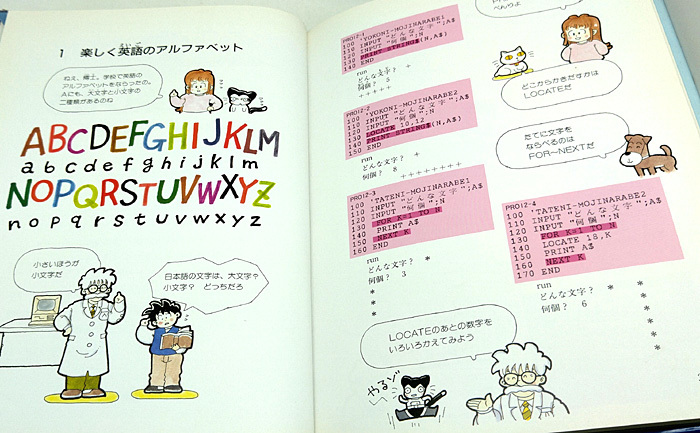 1 楽しく英語のアルファベット
ねえ、博士。学校で英語の
アルファベットをならったの。
Aにも、大文字と小文字の
二種類があるのね
ABCDEFGHIJKLM
abcdefghijklm
NOPQRSTUVWXYZ
nopqrstuvwxyz
小さいほうが
小文字だ
日本語の文字は、大文字?
小文字? どっちだろ
PRO12-1
100 'YOKONI-MOJINARABE1
110 INPUT "どんな文字";A$
120 INPUT "何個";N
130 PRINT STRING$(N,A$)
140 END
run
どんな文字? +
何個? 5
+++++
PRO12-2
100 'YOKONI-MOJINARABE2
110 INPUT "どんな文字";A$
120 INPUT "何個";N
130 LOCATE 10,12
140 PRINT STRING$(N,A$)
150 END
run
どんな文字? +
何個? 8
++++++++
PRO12-3
100 'TATENI-MOJINARABE1
110 INPUT "どんな文字";A$
120 INPUT "何個";N
130 FOR K=1 TO N
140 PRINT A$
150 NEXT K
160 END
run
どんな文字? *
何個? 3
*
*
*
べんりよ
どこからかきだすかは
LOCATEだ
たてに文字を
ならべるのは
FOR-NEXTだ
PRO12-4
100 'TATENI-MOJINARABE2
110 INPUT "どんな文字";A$
120 INPUT "何個";N
130 FOR K=1 TO N
140 LOCATE 18,K
150 PRINT A$
160 NEXT K
170 END
run
どんな文字? *
何個? 6
*
*
*
*
*
*
LOCATEのあとの数字を
いろいろかえてみよう
やるゾ